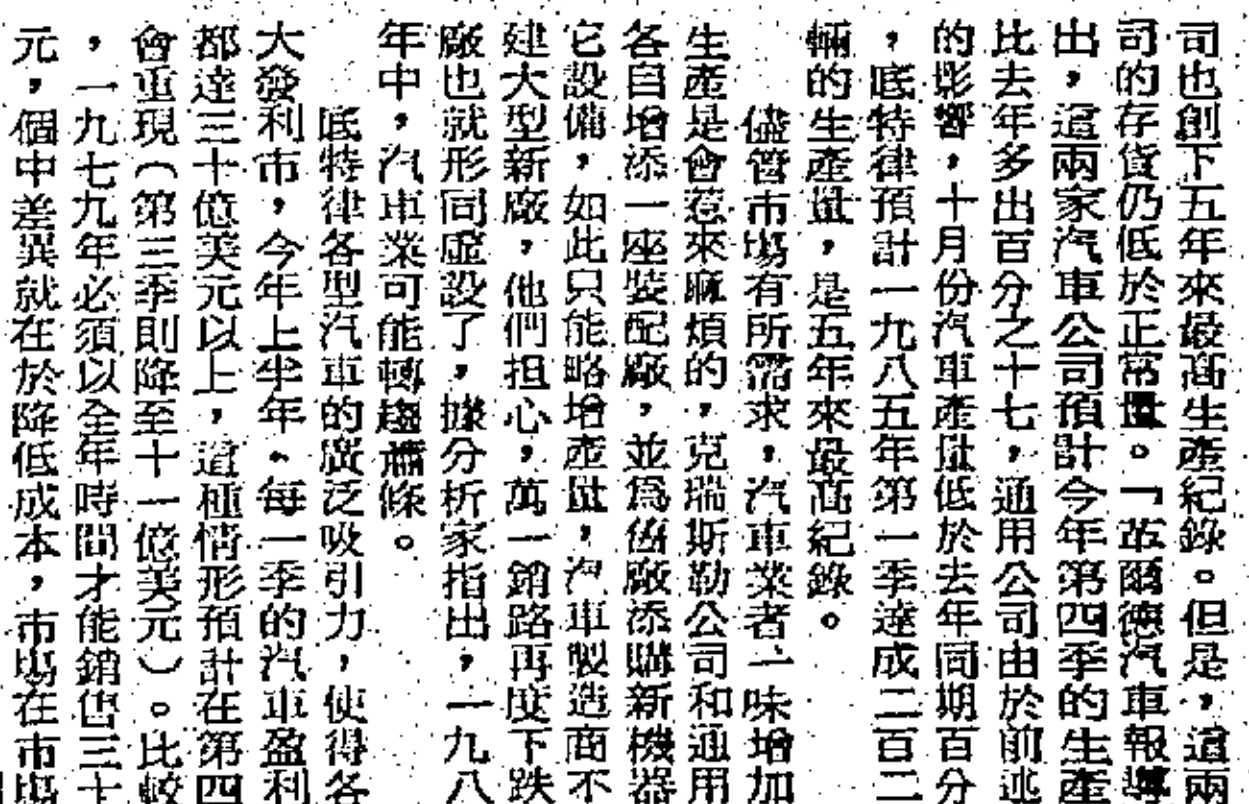 司也創下五年來最高生產紀錄。但是，這兩
司的存貨仍低於正常量。「革爾德汽車報導
出，這兩家汽車公司預計今年第四季的生產
比去年多出百分之十七，通用公司由於前述
的影響，十月份汽車產量低於去年同期百分
，底特律預計一九八五年第一季達成二百二
輛的生產量，是五年來最高紀錄。
儘管市場有所需求，汽車業者一味增加
生產是會惹來麻煩的，克瑞斯勒公司和通用
各自增添一座裝配廠，並為舊廠添購新機器
它設備，如此只能略增產量，汽車製造商不
建大型新廠，他們担心，萬一銷路再度下跌
廠也就形同虛設了，據分析家指出，一九八
年中，汽車業可能轉趨蕭條。
底特律各型汽車的廣泛吸引力，使得各
大發利市，今年上半年，每一季的汽車盈利
都達三十億美元以上，這種情形預計在第四
會重現（第三季則降至十一億美元）。比較
，一九七九年必須以全年時間才能銷售三十
元，個中差異就在於降低成本，市場在市場